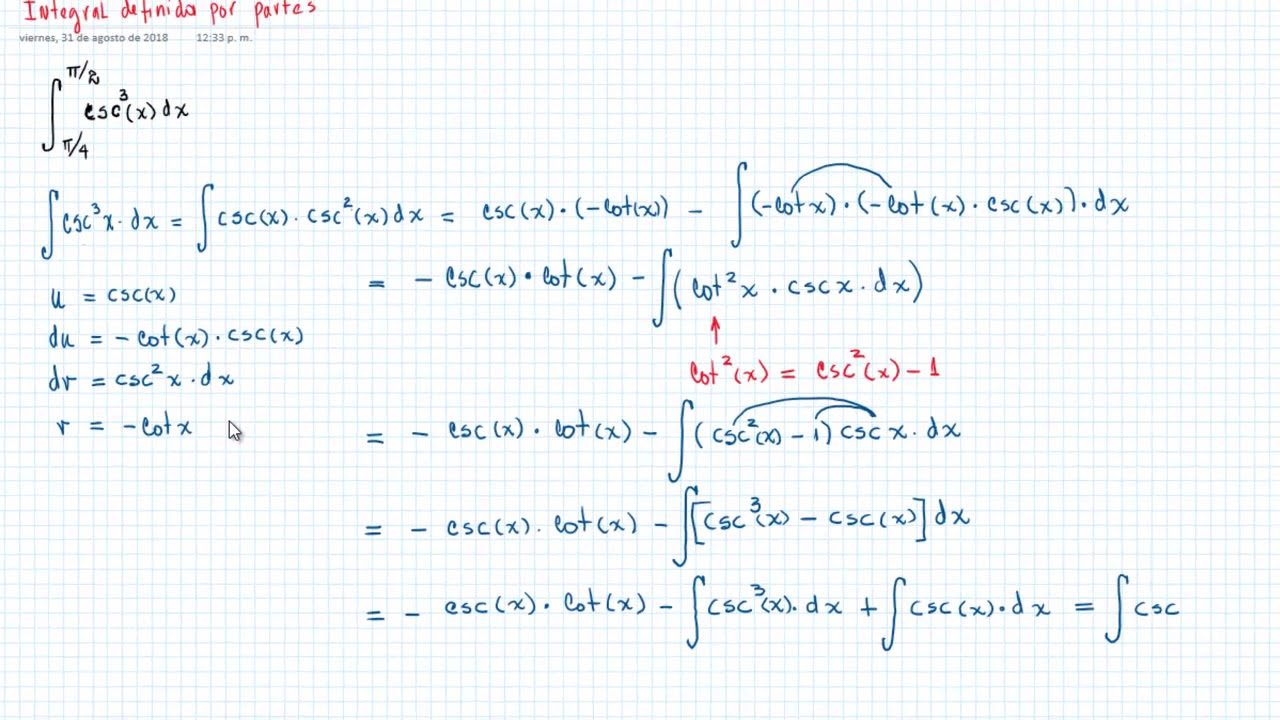 Integral definida por partes
viernes, 31 de agosto de 2018 12:33 p. m.
∫_{π/4}^{π/2} csc³(x) dx
∫ csc³x · dx = ∫ csc(x) · csc²(x) dx = csc(x) · (-cot(x)) - ∫ (-cotx) · (-cot(x) · csc(x)) · dx
= - csc(x) · cot(x) - ∫ (cot²x · cscx · dx)
u = csc(x)
du = - cot(x) · csc(x)
cot²(x) = csc²(x) - 1
dv = csc²x · dx
v = - cotx
= - csc(x) · cot(x) - ∫ (csc²(x) - 1) cscx · dx
= - csc(x) · cot(x) - ∫ [csc³(x) - csc(x)] dx
= - csc(x) · cot(x) - ∫ csc³(x) · dx + ∫ csc(x) · dx = ∫ csc